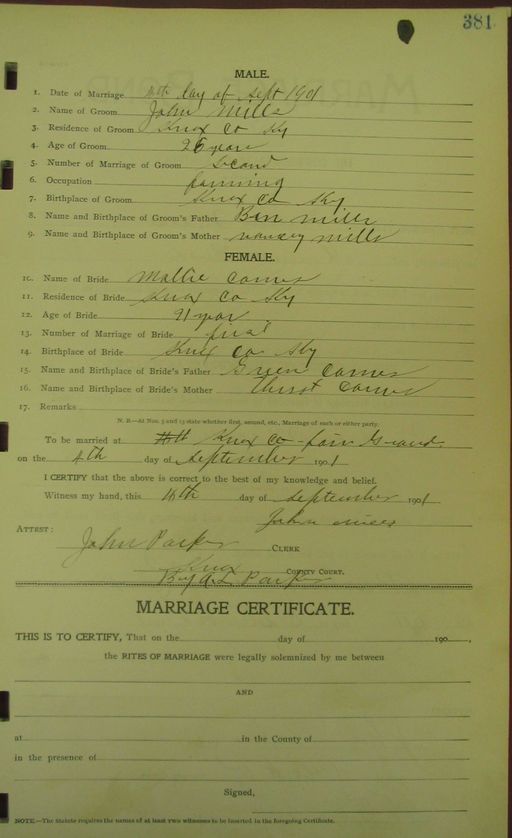 381
MALE.
1. Date of Marriage day of Sept 1901
2. Name of Groom John Mills
3. Residence of Groom Knox Co Ky
4. Age of Groom 26 years
5. Number of Marriage of Groom Second
6. Occupation farming
7. Birthplace of Groom Knox Co Ky
8. Name and Birthplace of Groom's Father Ben Mills
9. Name and Birthplace of Groom's Mother Mills
FEMALE.
10. Name of Bride Mollie
11. Residence of Bride Knox Co Ky
12. Age of Bride 21 year
13. Number of Marriage of Bride first
14. Birthplace of Bride Knox Co Ky
15. Name and Birthplace of Bride's Father Green
16. Name and Birthplace of Bride's Mother
17. Remarks
N. B.—At Nos. 5 and 13 state whether first, second, etc., Marriage of each or either party.
To be married at Knox Co fair Ground
on the day of September 1901
I CERTIFY that the above is correct to the best of my knowledge and belief.
Witness my hand, this day of September 1901
John Mills
ATTEST:
John Parker CLERK
Knox COUNTY COURT.
By Parker
MARRIAGE CERTIFICATE.
THIS IS TO CERTIFY, That on the day of 190 ,
the RITES OF MARRIAGE were legally solemnized by me between
AND
at in the County of
in the presence of
Signed,
NOTE.—The Statute requires the names of at least two witnesses to be inserted in the foregoing Certificate.